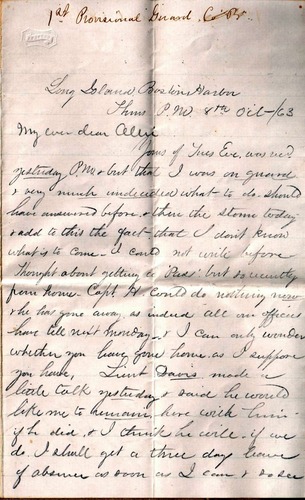 1st Provisional Guard. Co B.
Long Island Boston Harbor
Thurs P.M. 8th Oct-/63
My ever dear
yours of Tues Eve. was rec'd
yesterday P.M. & but that I was on guard
& very much undecided what to do - should
have answered before. & then the storm today
& add to this the fact - that I don't know
what is to come - I could not write before
Thought about getting a Pass: but so recently
from home - Capt. H could do nothing
& he has gone away, as indeed all our officers
have till next Monday - & I can only wonder
whether you have gone home as I suppose
you have. Lieut Davis made a
little talk yesterday & said he would
like me to remain here with him -
if he did, & I think he will - if we
do. I shall get a three day leave
of absence as soon as I can &